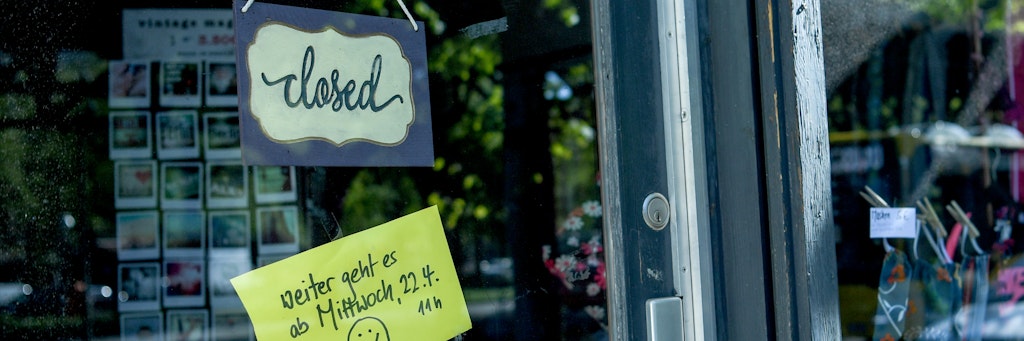 vintage mag
closed
Weiter geht es
ab Mittwoch, 22.4.
11h